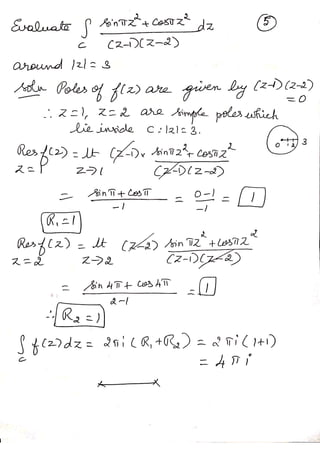 Evaluate ∫_C (sin πz² + cos πz²) / ((z-1)(z-2)) dz ⑤
around |z| = 3
Soln Poles of f(z) are given by (z-1)(z-2) = 0
∴ z=1, z=2 are simple poles which
lie inside C: |z| = 3.
0 1 2 3
Res f(z) = lt (z-1) x (sin πz² + cos πz²) / ((z-1)(z-2))
z=1 z→1
= (sin π + cos π) / -1 = (0-1) / -1 = 1
R₁ = 1
Res f(z) = lt (z-2) (sin πz² + cos πz²) / ((z-1)(z-2))
z=2 z→2
= (sin 4π + cos 4π) / (2-1) = 1
∴ R₂ = 1
∫_C f(z) dz = 2πi (R₁+R₂) = 2πi (1+1)
= 4πi